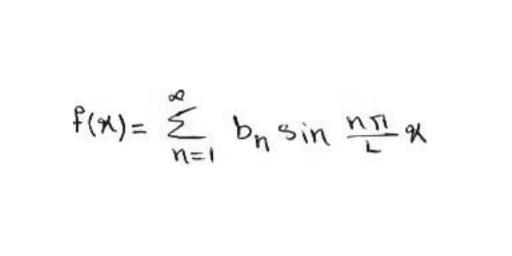 f(x) = ∑_{n=1}^{∞} b_n sin \frac{nπ}{L} x